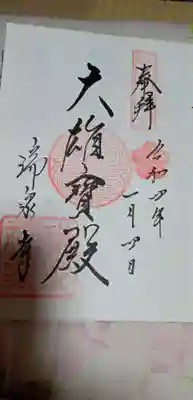 奉拝
令和四年
一月四日
大雄寶殿
瑞泉寺